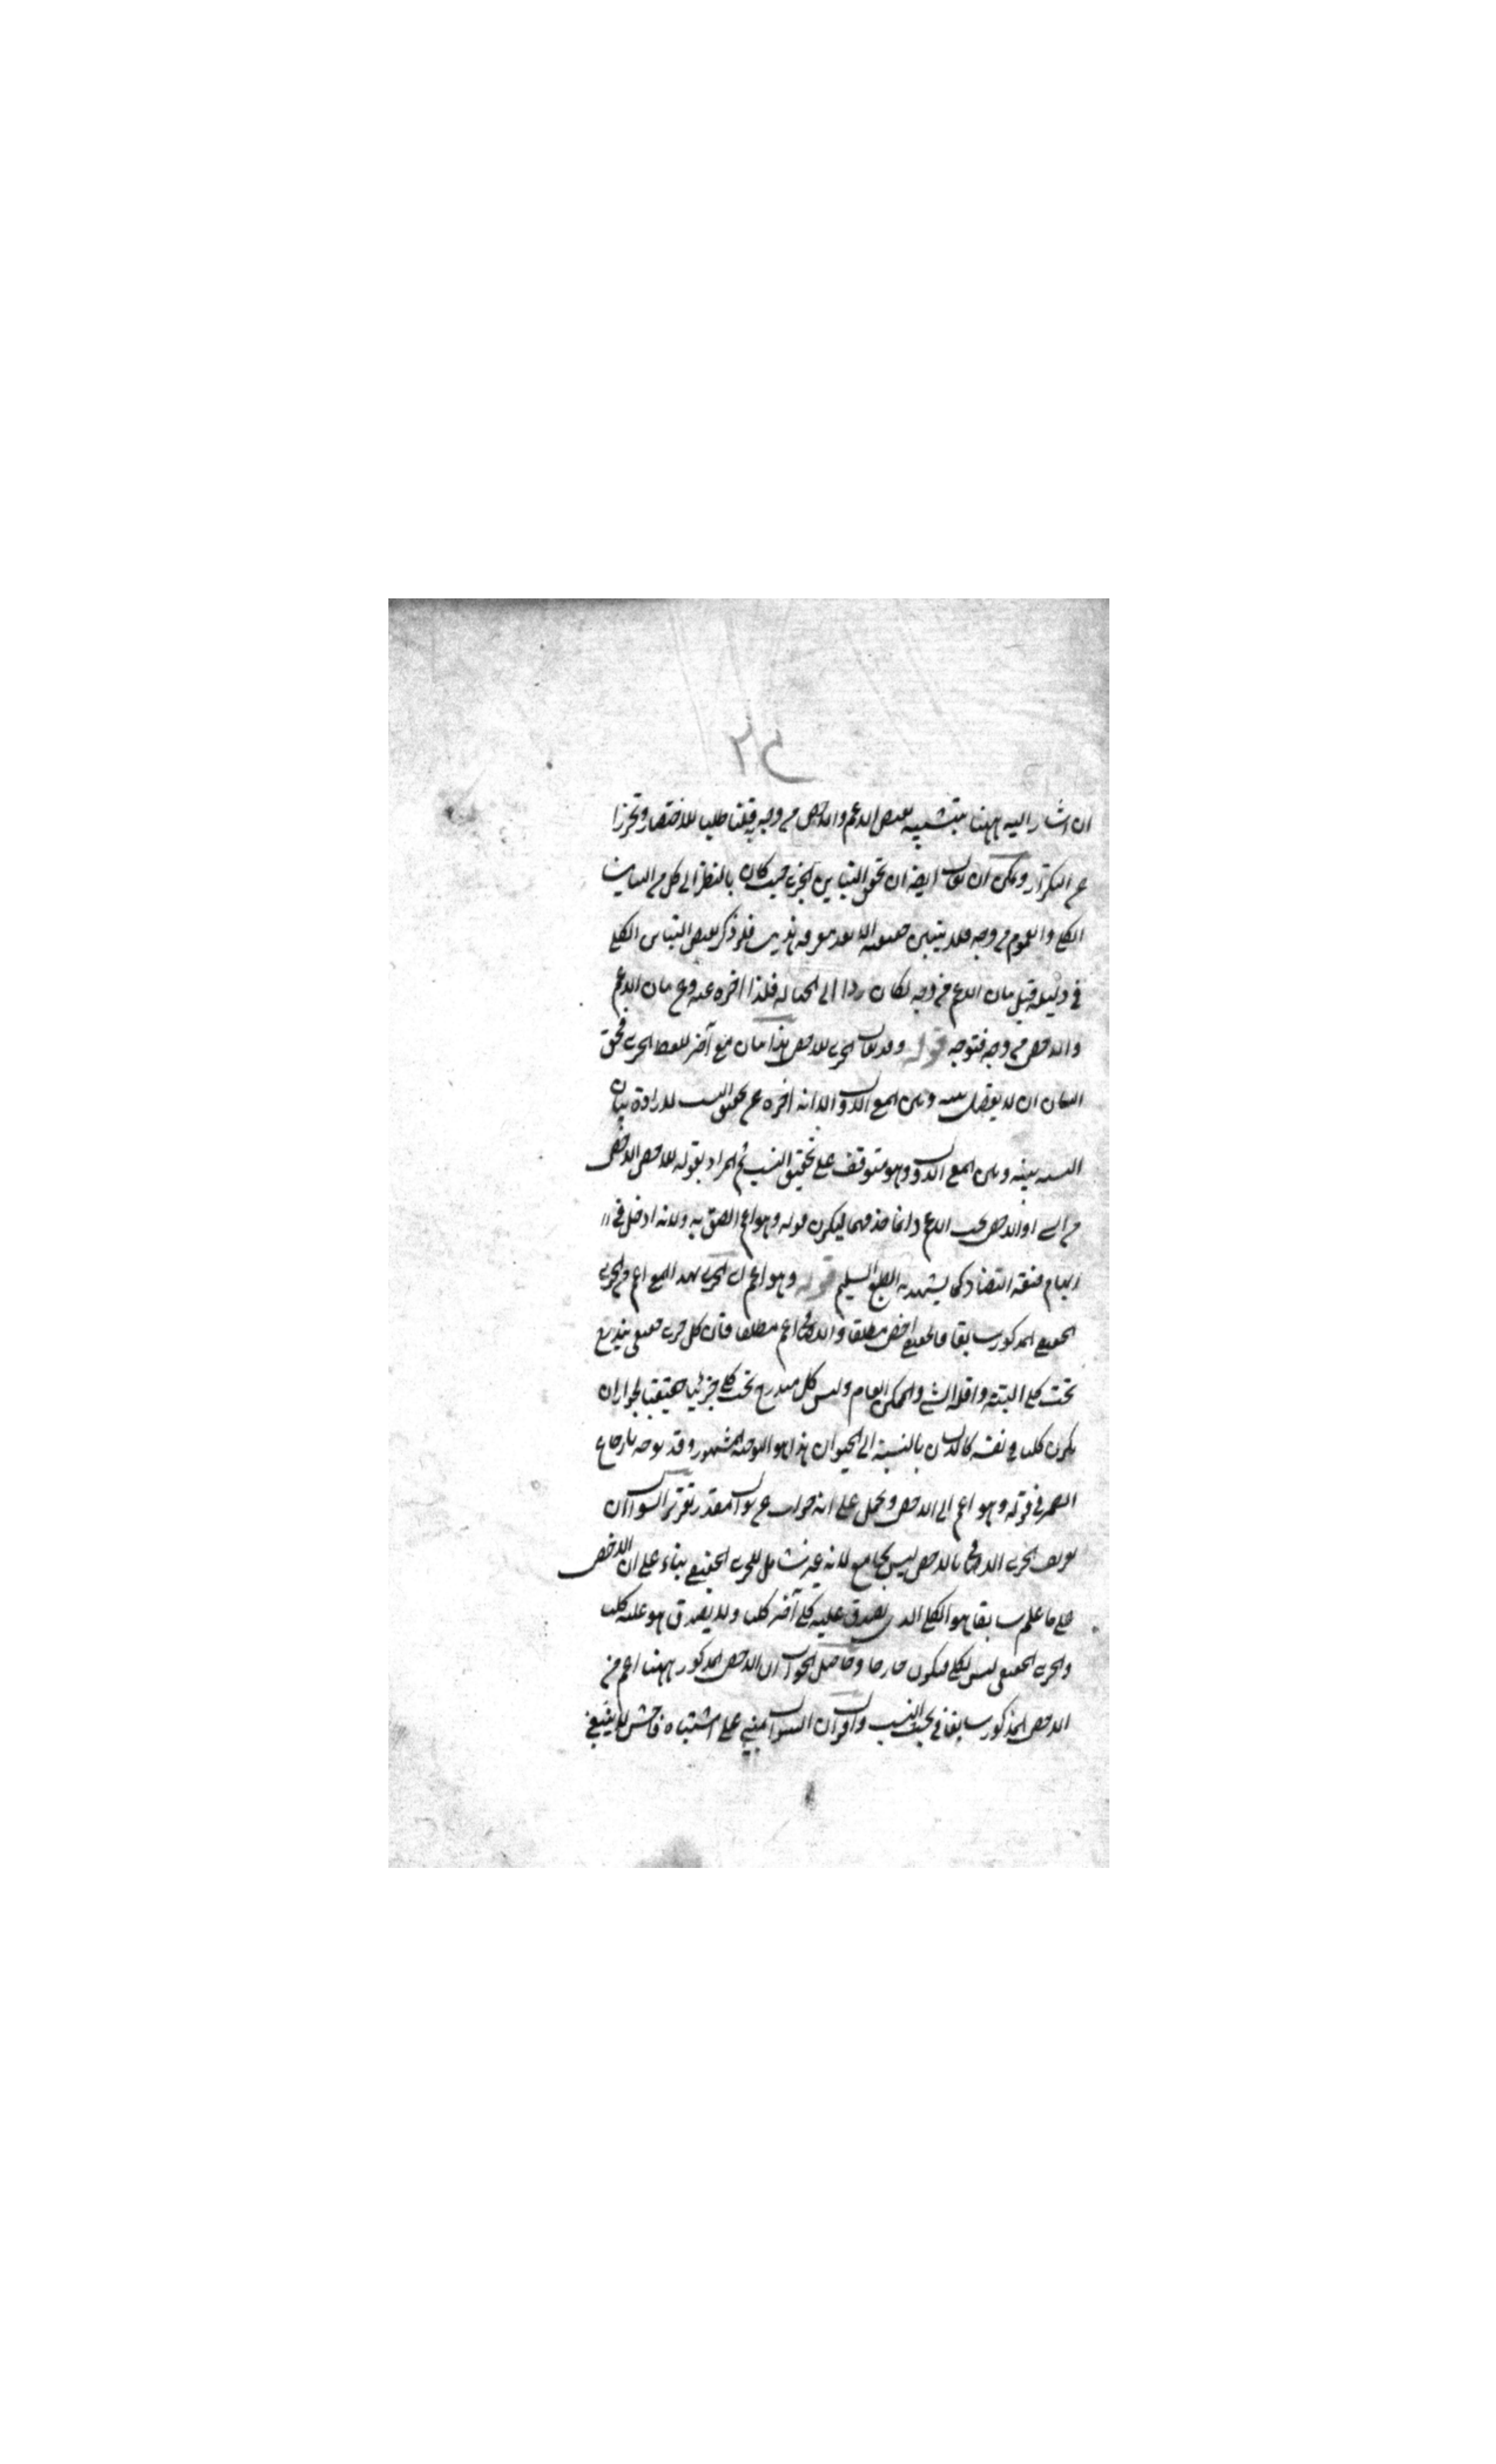 ان اشار اليه ههنا بتشبيه نقيض الاعم والاخص من وجه وقلنا طلبا للاختصار وتحرزا
عن التكرار ويمكن ان يقال ايضا ان تحقق التباين الجزئي حيث كان بالنظر الى كل من التباين
الكلي والعموم من وجه فلا يتبين حقيقته الا بعد معرفة هذين فلو ذكر نقيض التباين الكلي
في ذيله قبل بيان الاعم من وجه لكان ردا الى الجهالة فلذا اخره عنه وعن بيان الاعم
والاخص من وجه فتوجه قوله وقد يقال الجزئي للاخص هذا بيان معنى آخر للفظ الجزئي فحق
البيان ان لا يفصل بينه وبين المعنى الاول الا انه اخره عن تحقيق النسب لارادة بيان
النسبة بينه وبين المعنى الاول وهو متوقف على تحقيق النسب ثم المراد بقوله للاخص الاخص
من الشيء او الاخص تحت الاعم وانما حذفهما ليكون قوله وهو اعم الصق به ولانه ادخل في
ايهام صنعة التضاد كما يشهد به الطبع السليم قوله وهو اعم اي الجزئي بهذا المعنى اعم من الجزئي
الحقيقي المذكور سابقا فالحقيقي اخص مطلقا والاضافي اعم مطلقا فان كل جزئي حقيقي يندرج
تحت كلي البتة واقله الشيء والممكن العام وليس كل مندرج تحت كلي جزئيا حقيقيا لجواز ان
يكون كليا في نفسه كالانسان بالنسبة الى الحيوان هذا هو التوجيه المشهور وقد يوجه بارجاع
الضمير في قوله وهو اعم الى الاخص ويحمل على انه جواب عن سؤال مقدر تقرير السؤال ان
تعريف الجزئي الاضافي بالاخص ليس بجامع لانه غير شامل للجزئي الحقيقي بناء على ان الاخص
على ما علم سابقا هو الكلي الذي يصدق عليه كلي آخر كليا ولا يصدق هو عليه كليا
والجزئي الحقيقي ليس بكلي فيكون خارجا وحاصل الجواب ان الاخص المذكور ههنا اعم من
الاخص المذكور سابقا في بحث النسب واقول ان السؤال مبني على اشتباه فاحش لا ينبغي